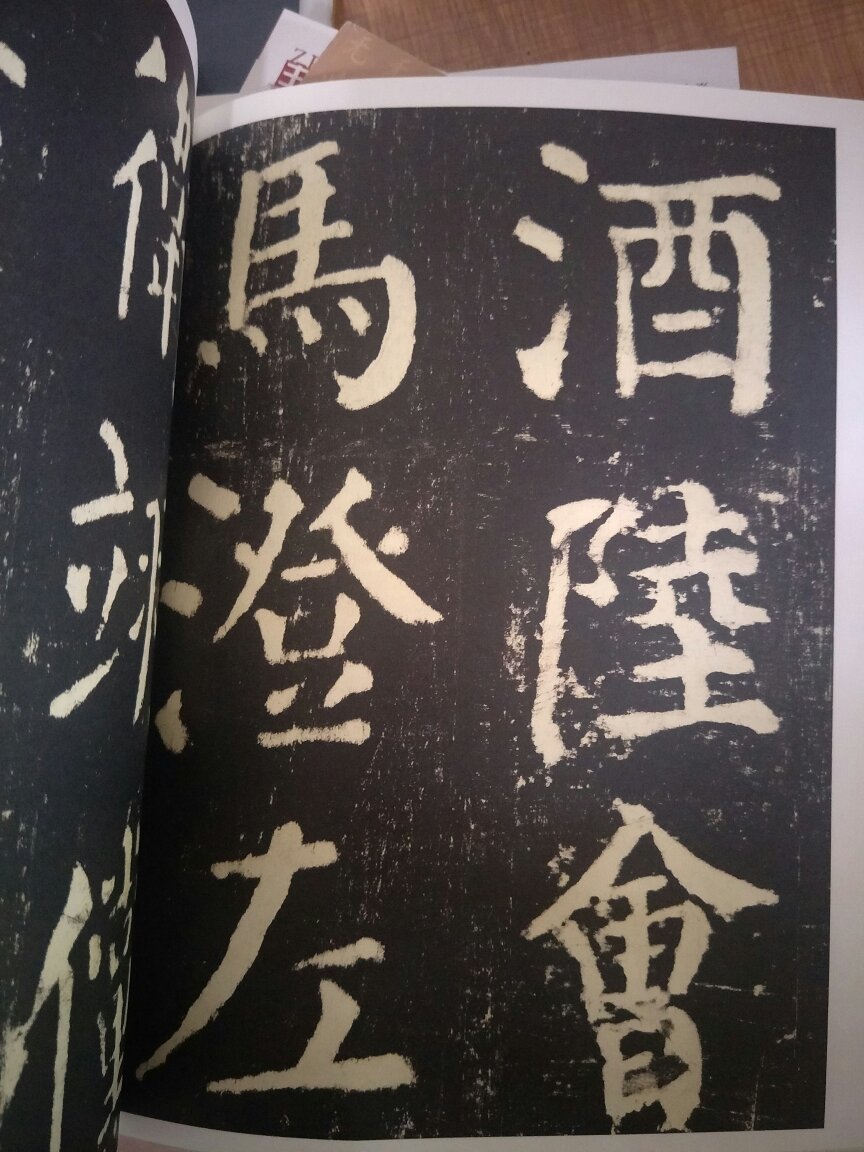 酒陸會
馬澄左